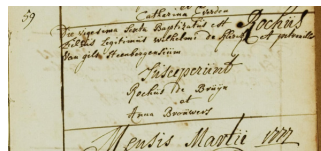 59
Catharina Eversen
Die vigesima sexta Baptizatus est Rochus
filius legitimus wilhelmi de et petronilla
Van gils Steenbergensium
Susceperunt
Rochus de Bruijn
et
Anna Brouwers
Mensis Martii 1777